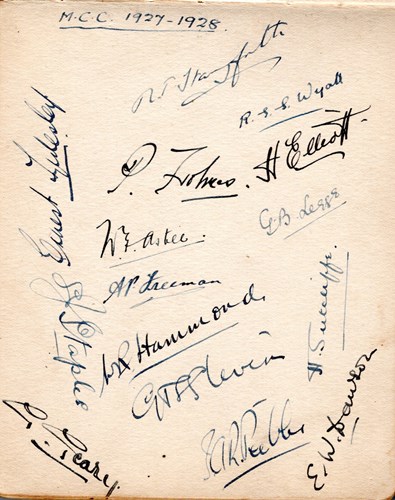 M.C.C. 1927-1928.
R T Stanyforth
R.E.S. Wyatt
P. Holmes.
H Elliott.
G B Legge
Ernest Tyldesley
W.E. Astill.
A P Freeman
S J Staples
W R Hammond.
H. Sutcliffe
G T S Stevens
G. Geary
I A R Peebles
E. W. Dawson